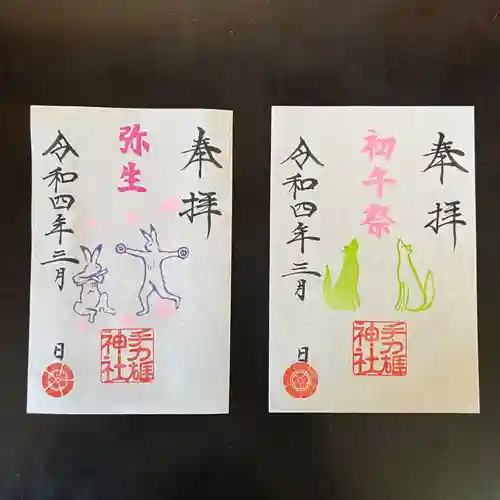 奉拝
弥生
令和四年三月
日
手力雄
神社
奉拝
初午祭
令和四年三月
日
手力雄
神社